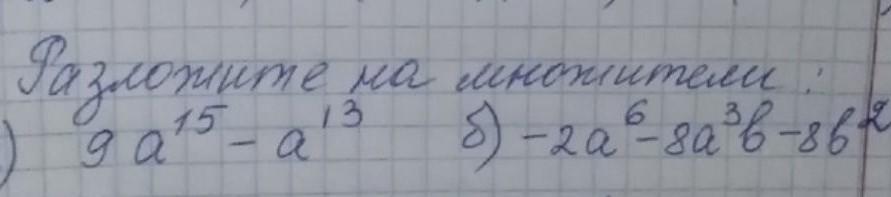 Разложите на множители:
) 9a¹⁵ - a¹³ б) -2a⁶ - 8a³b - 8b²